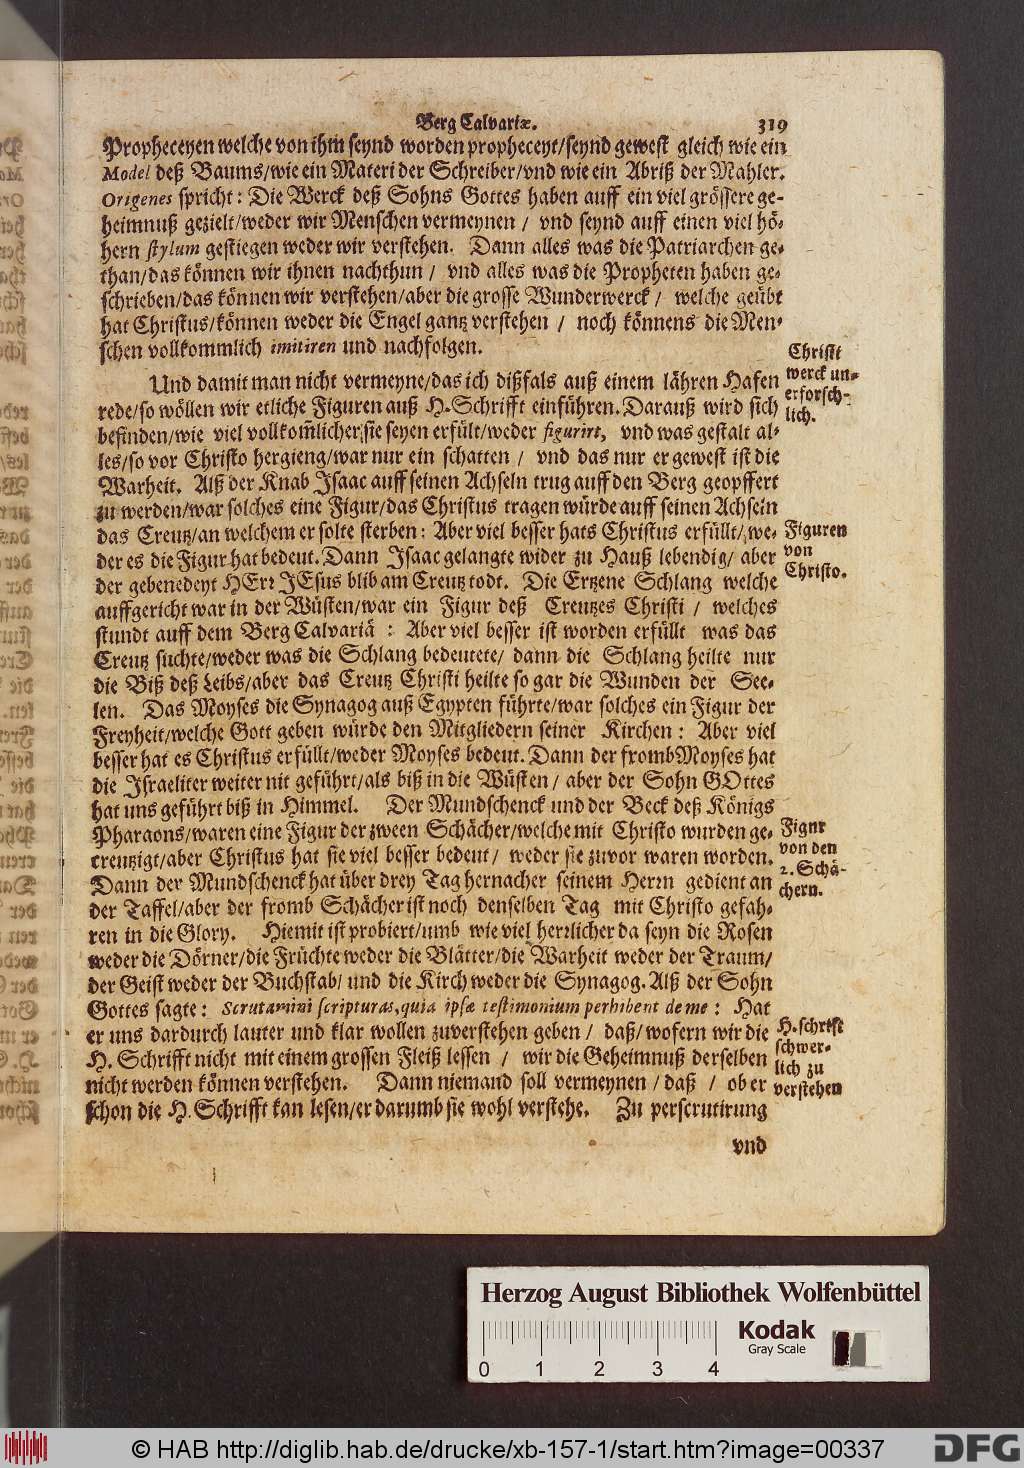 Berg Calvariæ. 319
Propheceyen welche von ihm seynd worden propheceyt/seynd gewest gleich wie ein
Model deß Baums/wie ein Materi der Schreiber/vnd wie ein Abriß der Mahler.
Origenes spricht: Die Werck deß Sohns Gottes haben auff ein viel grössere ge-
heimnuß gezielt/weder wir Menschen vermeynen / vnd seynd auff einen viel hö-
hern stylum gestiegen weder wir verstehen. Dann alles was die Patriarchen ge-
than/das können wir ihnen nachthun / vnd alles was die Propheten haben ge-
schrieben/das können wir verstehen/aber die grosse Wunderwerck / welche geübt
hat Christus/können weder die Engel gantz verstehen / noch könnens die Men-
schen vollkommlich imitiren und nachfolgen.
Christi
werck un-
erforsch-
lich.
Und damit man nicht vermeyne/das ich dißfals auß einem lähren Hafen
rede/so wöllen wir etliche Figuren auß H. Schrifft einführen. Darauß wird sich
befinden/wie viel vollkom̃licher sie seyen erfült/weder figurirt, vnd was gestalt al-
les/so vor Christo hergieng/war nur ein schatten / vnd das nur er gewest ist die
Warheit. Alß der Knab Isaac auff seinen Achseln trug auff den Berg geopffert
zu werden/war solches eine Figur/das Christus tragen würde auff seinen Achseln
das Creutz/an welchem er solte sterben: Aber viel besser hats Christus erfüllt/we-
der es die Figur hat bedeut. Dann Isaac gelangte wider zu Hauß lebendig/ aber
der gebenedeyt HErr JEsus blib am Creutz todt. Die Ertzene Schlang welche
auffgericht war in der Wüsten/war ein Figur deß Creutzes Christi / welches
stundt auff dem Berg Calvariä : Aber viel besser ist worden erfüllt was das
Creutz suchte/weder was die Schlang bedeutete/ dann die Schlang heilte nur
die Biß deß Leibs/aber das Creutz Christi heilte so gar die Wunden der See-
len. Das Moyses die Synagog auß Egypten führte/war solches ein Figur der
Freyheit/welche Gott geben würde den Mitgliedern seiner Kirchen: Aber viel
besser hat es Christus erfüllt/weder Moyses bedeut. Dann der fromb Moyses hat
die Israeliter weiter nit geführt/als biß in die Wüsten / aber der Sohn GOttes
hat uns geführt biß in Himmel. Der Mundschenck und der Beck deß Königs
Pharaons/waren eine Figur der zween Schächer/welche mit Christo wurden ge-
creutzigt/aber Christus hat sie viel besser bedeut/ weder sie zuvor waren worden.
Dann der Mundschenck hat über drey Tag hernacher seinem Herrn gedient an
der Taffel/aber der fromb Schächer ist noch denselben Tag mit Christo gefah-
ren in die Glory. Hiemit ist probiert/umb wie viel herrlicher da seyn die Rosen
weder die Dörner/die Früchte weder die Blätter/die Warheit weder der Traum/
der Geist weder der Buchstab/ und die Kirch weder die Synagog. Alß der Sohn
Gottes sagte: Scrutamini scripturas, quia ipsæ testimonium perhibent de me : Hat
er uns dardurch lauter und klar wollen zuverstehen geben / daß/wofern wir die
H. Schrifft nicht mit einem grossen Fleiß lessen / wir die Geheimnuß derselben
nicht werden können verstehen. Dann niemand soll vermeynen / daß / ob er
schon die H. Schrifft kan lesen/er darumb sie wohl verstehe. Zu perscrutirung
Figuren
von
Christo.
Figur
von den
2. Schä-
chern.
H. schrifft
schwer-
lich zu
verstehen
vnd
Herzog August Bibliothek Wolfenbüttel
0 1 2 3 4
Kodak
Gray Scale
© HAB http://diglib.hab.de/drucke/xb-157-1/start.htm?image=00337
DFG